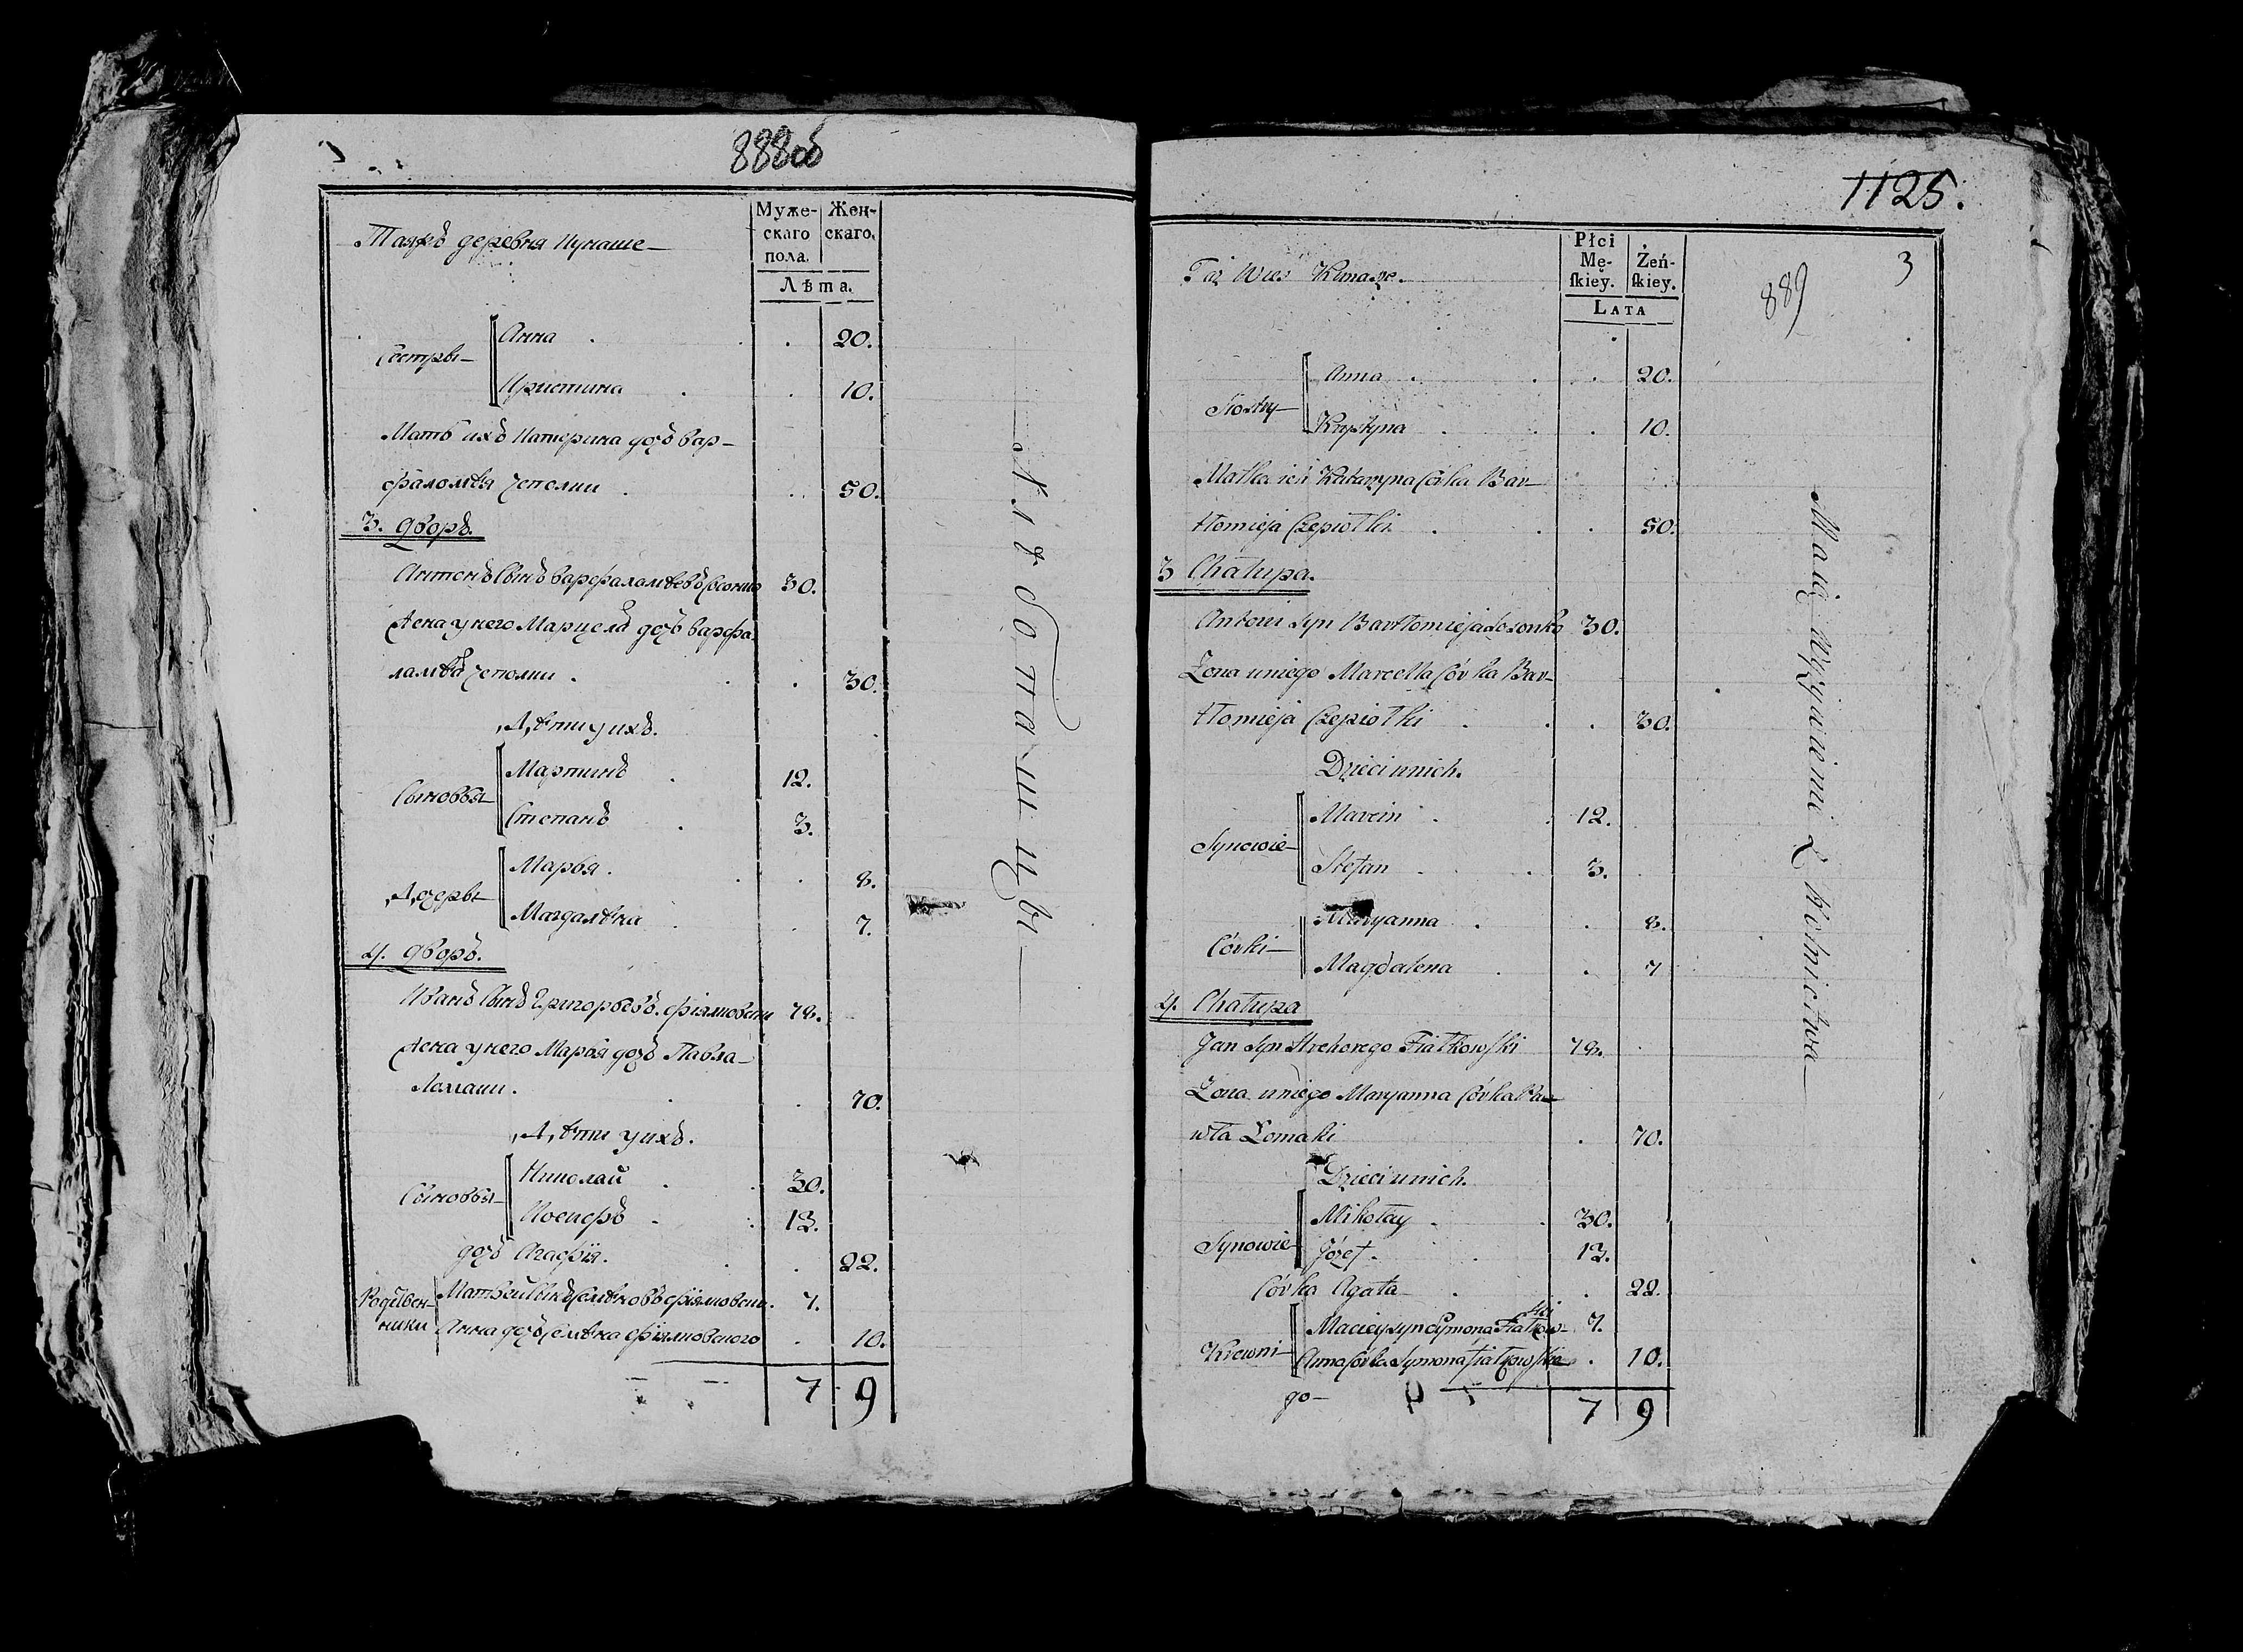 888об
Таяжъ деревня Кунаше
Муже-
скаго
пола.
Жен-
скаго.
Лѣта.
Сестры
Анна 20.
Кристина 10.
Мать ихъ Катерина дочь Вар-
фаломѣя Чепелки 50.
3. дворъ.
Антонъ Сынъ Варфаламѣевъ 30.
Жена у него Марцела дочь Варфа
ламѣя Чеполки 30.
Дѣти у ихъ.
Сыновья
Мартинъ 12.
Степанъ 3.
Дочеры
Марья. 8.
Магдалѣна 7.
4. дворъ.
Иванъ Сынъ Григорьевъ Фіялковски 78.
Жена у него Марья дочь Павла
Ломаки. 70.
Дѣти у ихъ.
Сыновья
Николай 30.
Іосифъ 13.
дочь Агафія. 22.
Родствен-
ники
Матвѣй Сынъ Семѣновъ Фіялковски. 7.
Анна дочь Семѣна Фіялковского 10.
7 9
Хлѣбопашцы
1125.
3
889
Taż Wieś Kunasze.
Płci
Mę-
ſkiey.
Żeń-
ſkiey.
LATA
Siostry
Anna 20.
Krystyna 10.
Matka ich Katarzyna Córka Bar-
tłomieja Czepiołki 50.
3 Chałupa.
Antoni Syn Bartłomieja Sosonko 30.
Żona u niego Marcella Córka Bar-
tłomieja Czepiołki 30.
Dzieci u nich.
Synowie
Marcin 12.
Stefan 3.
Córki
Maryanna 8.
Magdalena 7
4. Chałupa
Jan Syn Hrehorego Fiałkowſki 78.
Żona u niego Maryanna Córka Pa-
wła Łomaki 70.
Dzieci u nich.
Synowie
Mikołay 30.
Józef. 13.
Córka Agata 22.
Krewni
Maciey syn Symona Fiałkow-
ski 7.
Anna Córka Symona Fiałkowskie- 10.
go-
7 9
Maią Wyżywienie z Rolnictwa